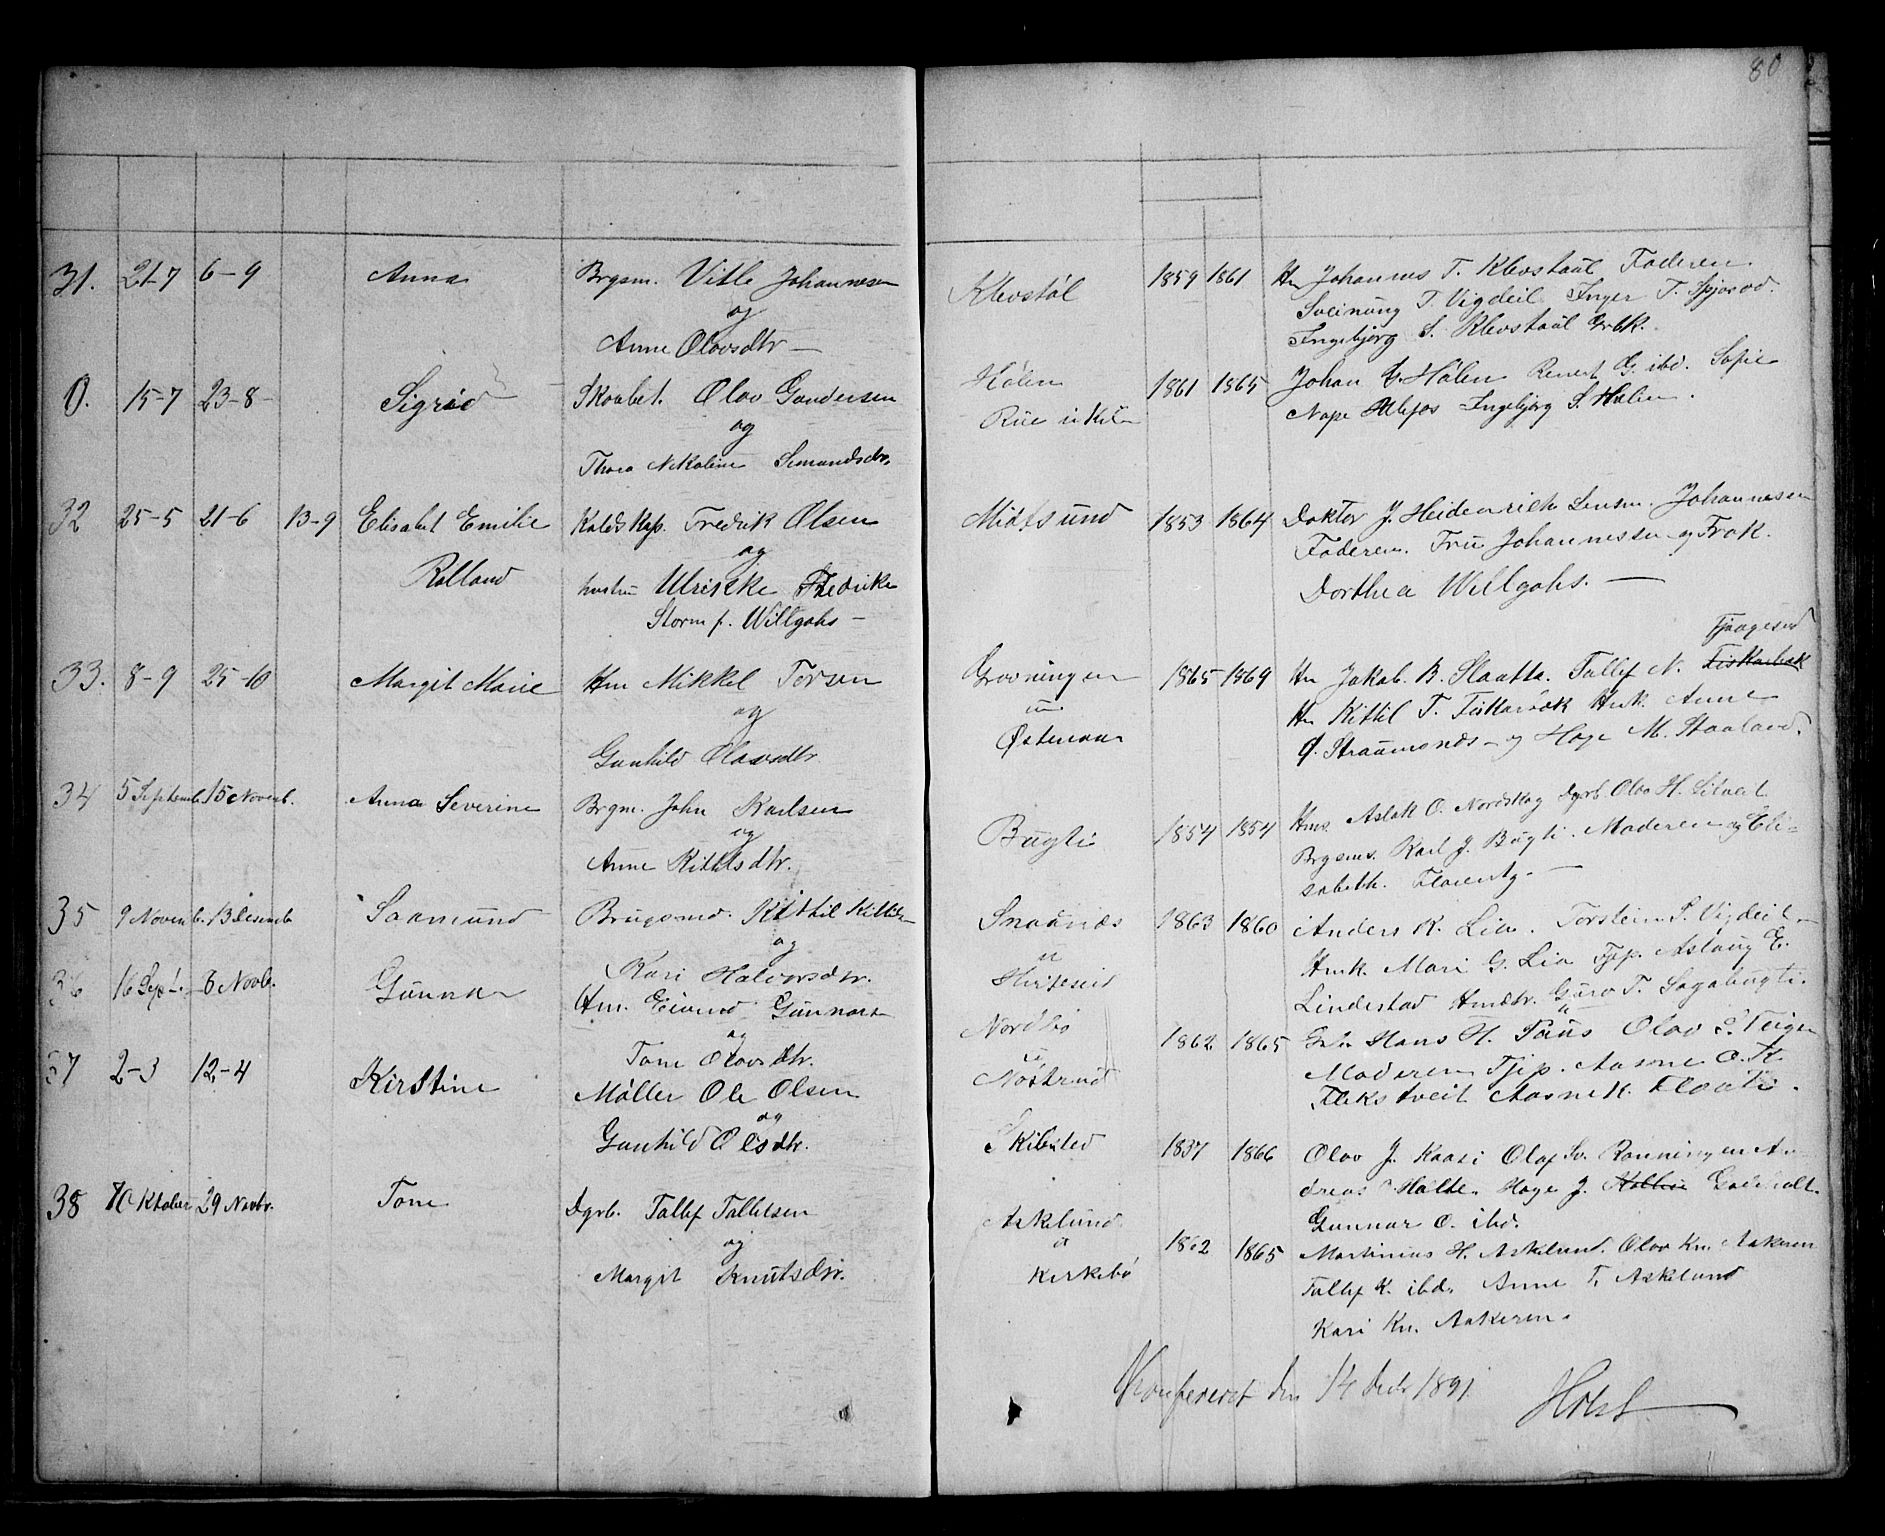 80
31. 21-7 6-9 Anna Brgsm. Vitle Johannesen
og
Anne Olovsdtr
Klevstöl 1859 1861 Hr Johannes T. Klevstaül Faderen.
Sveinung T. Vigdeil Inger T. Spjosod.
Ingebjørg S. Klevstaül Grbk.
0. 15-7 23-8 Sigrid Skoubet. Olov Gundersen
og
Thora Nikoline Semundsdtr.
Hölen
Rüe i
1861 1865 Johan G. Hölen G. ibd. Sofie
Nape Ulefos Ingebjörg S. Hölen.
32 25-5 21-6 13-9 Elisabet Emilie Kaldskap. Fredrik Olsen
Rolland
og
hustru Ulrikke Fredrikke
Storm f. Willgohs
Midtsund 1853 1864 Doktor J. Heidenrich Lensm. Johannesen
Faderen. Frü Johannessen og Frøk.
Dorthea Willgohs.
33. 8-9 25-10 Margit Marie Hm Mikkel Torsen
og
Gunhild Olavsdtr
Grovningen
Østenaa
1865 1869 Hm Jakob. B. Slaatta. Tallef N.
Hm Kittil T. Hmk. Anne
O. Straumsnæs og Hoge M. Staaland.
34 5 Septemb. 15 Novemb. Anna Severine Brgm. John Karlsen
og
Anne Kittilsdtr.
Bugti 1854 1854 Hms. Aslak O. Nordskog Dgrb. Olov H.
Brgsms. Karl J. Bugti. Moderen og Eli-
sabeth. Florenty.
35 9 Novemb. 13 Desemb Saamund Brugsmd. Kittil Kittilsen
og
Kari Halvorsdtr.
Snaanæs
1863 1860 Anders K. Lia. Torstein S. Vigdeil
Hmk. Mari G. Lia Tjp. Aslaug E.
Lindestad Hmdtr. Guro T. Sagabugti.
36 16 Sept. 8 Novb. Gunnar Hm. Eivind Gunnars
og
Tone Olovsdtr.
Nordbö
1862 1865 Hans H. Paus Olov S. Teigen
Moderen Tjp. Aasne O. K.
Flekstveit Aasne K. Flaati.
37 2-3 12-4 Kirstine Møller Ole Olsen
og
Gunhild Olsdtr.
Skibsted 1837 1866 Olov J. Kaasi Olaf Sv. Rönningen An-
dreas Holte. Hoge J. Godtholt.
Gunnar O. ibd.
38 Oktober 29 Novbr. Tone Dgrb. Tallef Tallefsen
og
Margit Knutsdtr.
Asklund
Kirkebö
1862 1865 Martinius H. Asklund. Olov Kn. Aakeren
Tallef K. ibd. Anne T. Asklund
Kari Kn. Aakeren.
Konfereret den 14 Decbr 1891
Holst